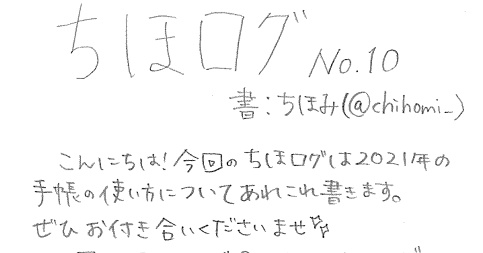 ちほログ No.10
書:ちほみ(@chihomi_)
こんにちは!今回のちほログは2021年の
手帳の使い方についてあれこれ書きます。
ぜひお付き合いくださいませ☆☆